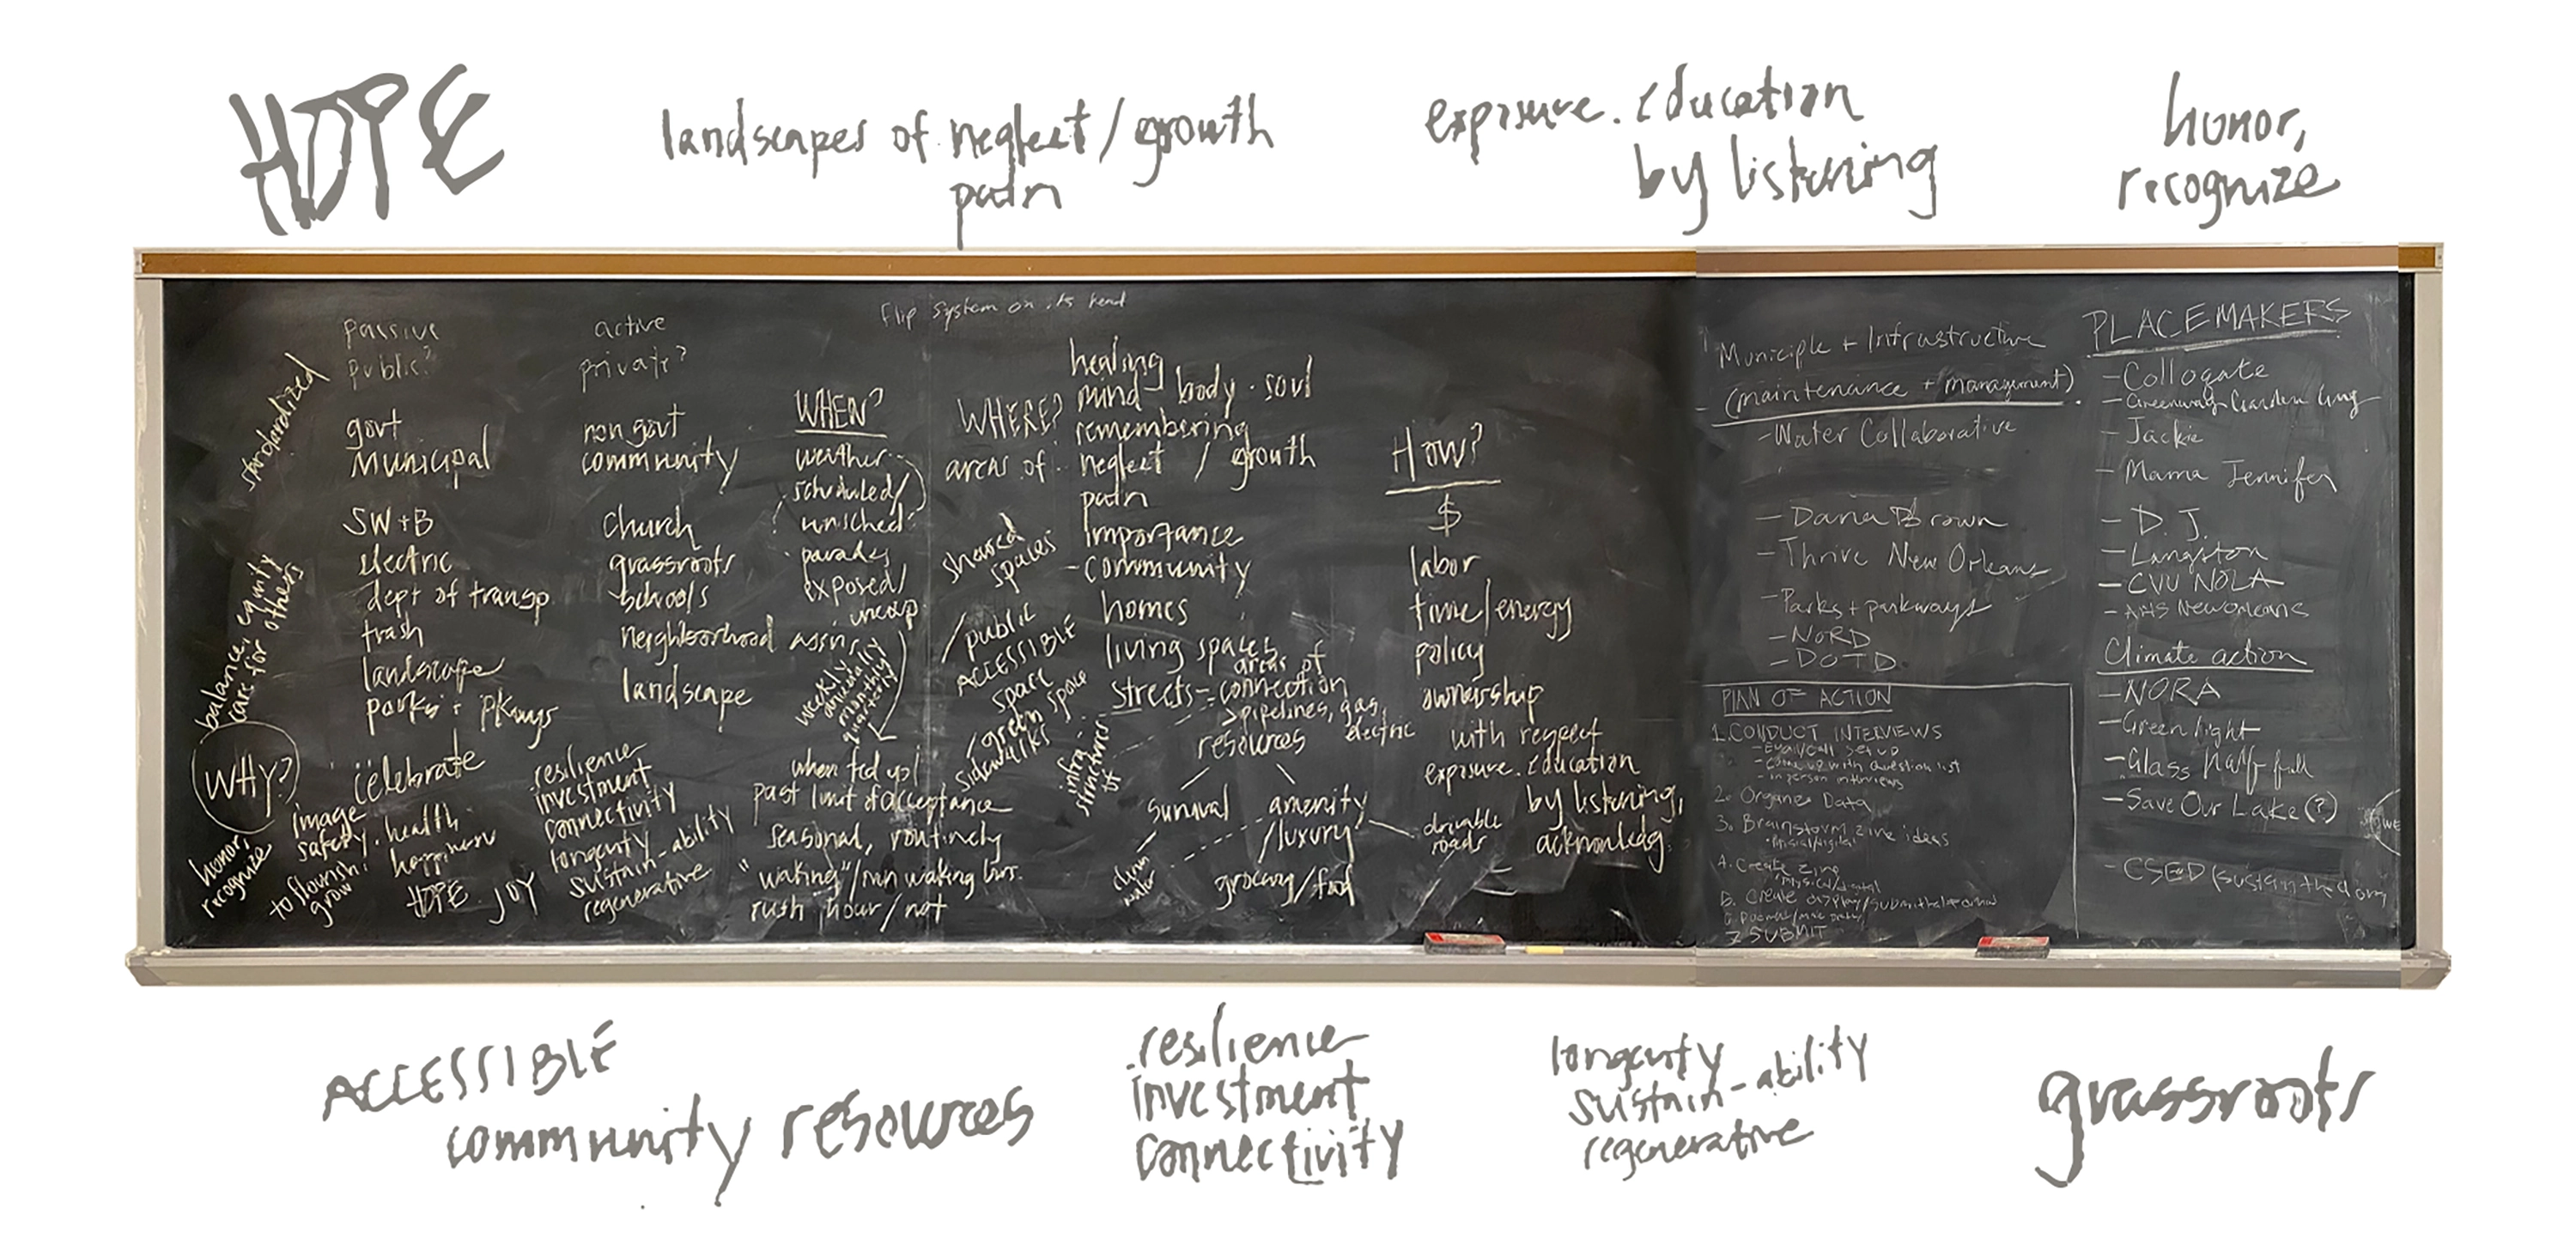 HOPE
landscapes of neglect / growth
pain
exposure. education
by listening
honor,
recognize
Flip system on its head
standardized
balance, equity
care for others
WHY?
honor,
recognize
passive
public?
govt
Municipal
SW+B
electric
dept of transp
trash
landscape
parks + pkways
celebrate
image
safety. health
happiness
to flourish!
grow
HOPE. JOY
active
private?
non govt
community
church
grassroots
schools
neighborhood assns
landscape
resilience
investment
connectivity
longevity
sustain-ability
regenerative
WHEN?
weather
scheduled/
unsched
parades
exposed/
weekly
annually
monthly
quarterly
when fed up!
past limit of acceptance
seasonal, routinely
"waking"/non waking hrs.
rush hour / not
WHERE?
areas of
shared
spaces
public
ACCESSIBLE
space
green space
sidewalks
infra
structures
healing
mind body. soul
remembering
neglect / growth
pain
importance
- community
homes
living spaces
streets - areas of
connection
pipelines, gas,
electric
resources
survival
amenity
/luxury
clean
water
grocery/food
drivable
roads
HOW?
$
labor
time/energy
policy
ownership
with respect
exposure. education
by listening,
acknowledg.
Municiple + Infrastructure
(maintenance + management)
- Water Collaborative
- Dana Brown
- Thrive New Orleans
- Parks + parkways
- NORD
- DOTD
PLAN OF ACTION
1. CONDUCT INTERVIEWS
- Email/call set up
- Come up with question list
- in person interviews
2. Organize Data
3. Brainstorm zine ideas
• physical/digital
4. Create zine
physical/digital
5. Create display
7 SUBMIT
PLACEMAKERS
- Collogate
- Greenway Garden
- Jackie
- Mama Jennifer
- D. J.
- Langston
- CVU NOLA
- AHS New Orleans
Climate action
- NORA
- Green light
- Glass half full
- Save Our Lake (?)
- CSED
ACCESSIBLE
community resources
resilience
investment
connectivity
longevity
sustain-ability
regenerative
grassroots